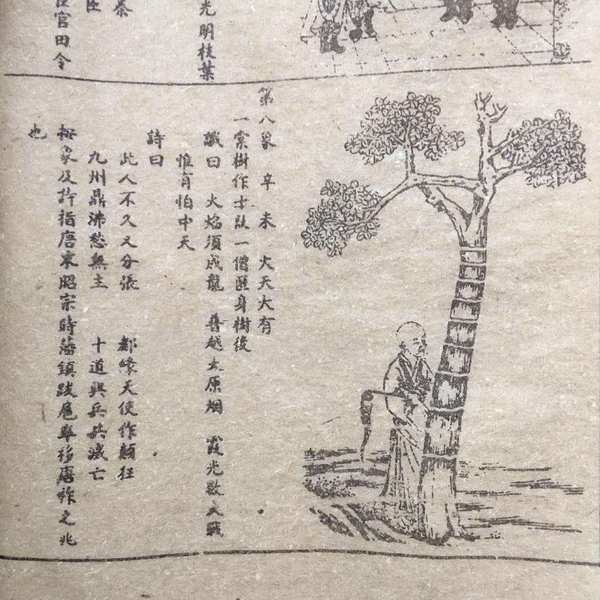 光明桂葉
臣
官田令
第八象 辛未 火天大有
一索樹作士 一僧匿身樹後
讖曰 火焰須成龍 喜越太原烟 霞光 大戰
惟肖怕中天
詩曰
此人不久又分張 都緣天使作顛狂
九州鼎沸愁無主 十道興兵共滅亡
按象及詩指唐末昭宗時藩鎮跋扈舉移唐祚之兆
也